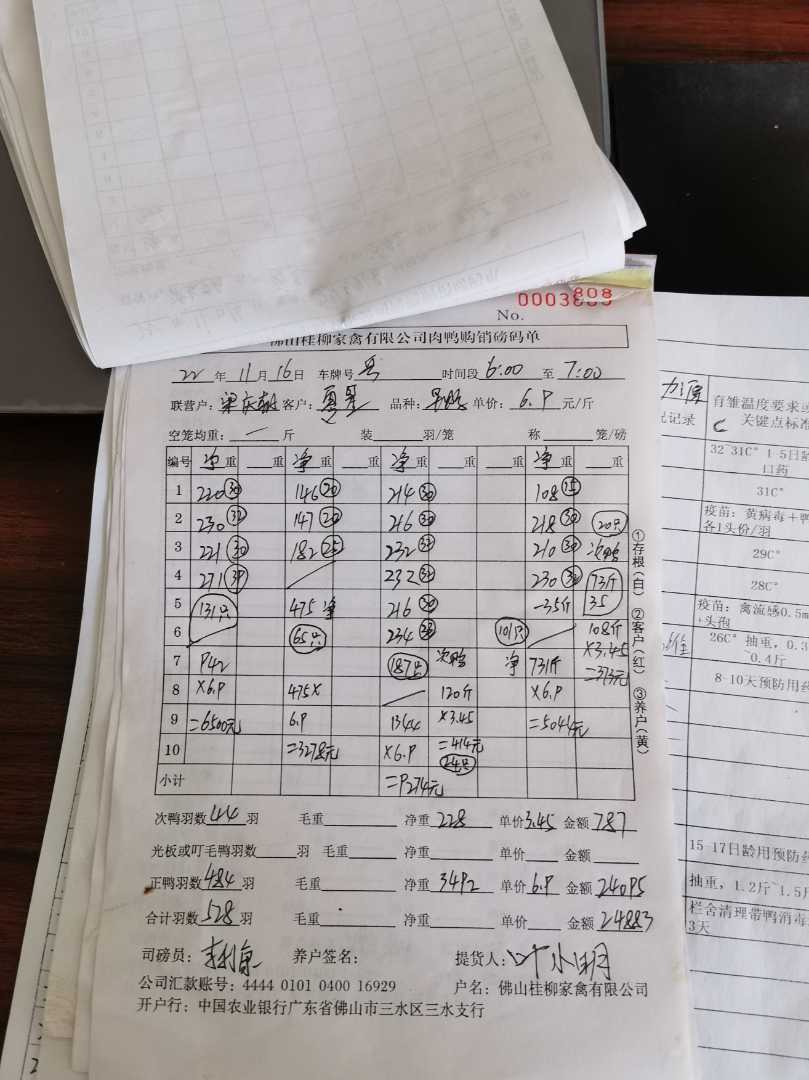 No. 0003808
佛山桂柳家禽有限公司肉鸭购销磅码单
22年11月16日 车牌号 时间段6:00至7:00
联营户: 客户: 品种: 单价:6.9元/斤
空笼均重:一斤 装 羽/笼 称 笼/磅
编号 净重 重 净重 重 净重 重 重 净重 重
1 220㉚ 146⑳ 214㉚ 108⑮
2 230㉜ 147⑳ 216㉚ 218㉚ 20只
3 221㉚ 182㉕ 232 210㉚ 次鸭
4 271㊴ 232 230 73斤
5 131只 475净 216㉚ -35斤 35
6 65只 234 101只 108斤
7 942 187只 次鸭 净 731斤 ×3.45
=373元
8 ×6.9 475× 120斤 ×6.9
9 =6500元 6.9 1344 ×3.45 =5044元
10 =3278元 ×6.9 =414元
小计 =9274元 24只
①存根(白)②客户(红)③养户(黄)
次鸭羽数44羽 毛重 净重228 单价3.45 金额787
光板或叮毛鸭羽数 羽 毛重 净重 单价 金额
正鸭羽数484羽 毛重 净重3492 单价6.9 金额24095
合计羽数528羽 毛重 净重 单价 金额24883
司磅员: 养户签名: 提货人:叶小明
公司汇款账号:4444 0101 0400 16929 户名:佛山桂柳家禽有限公司
开户行:中国农业银行广东省佛山市三水区三水支行
力源
记录
育雏温度要求
关键点标准
32~31C° 1-5日龄
口药
31C°
疫苗:黄病毒+鸭
各1头份/羽
29C°
28C°
疫苗:禽流感0.5m
+头孢
26C° 抽重,0.3
~0.4斤
8-10天预防用药
15-17日龄用预防药
抽重,1.2斤~1.5斤
栏舍清理带鸭消毒
3天